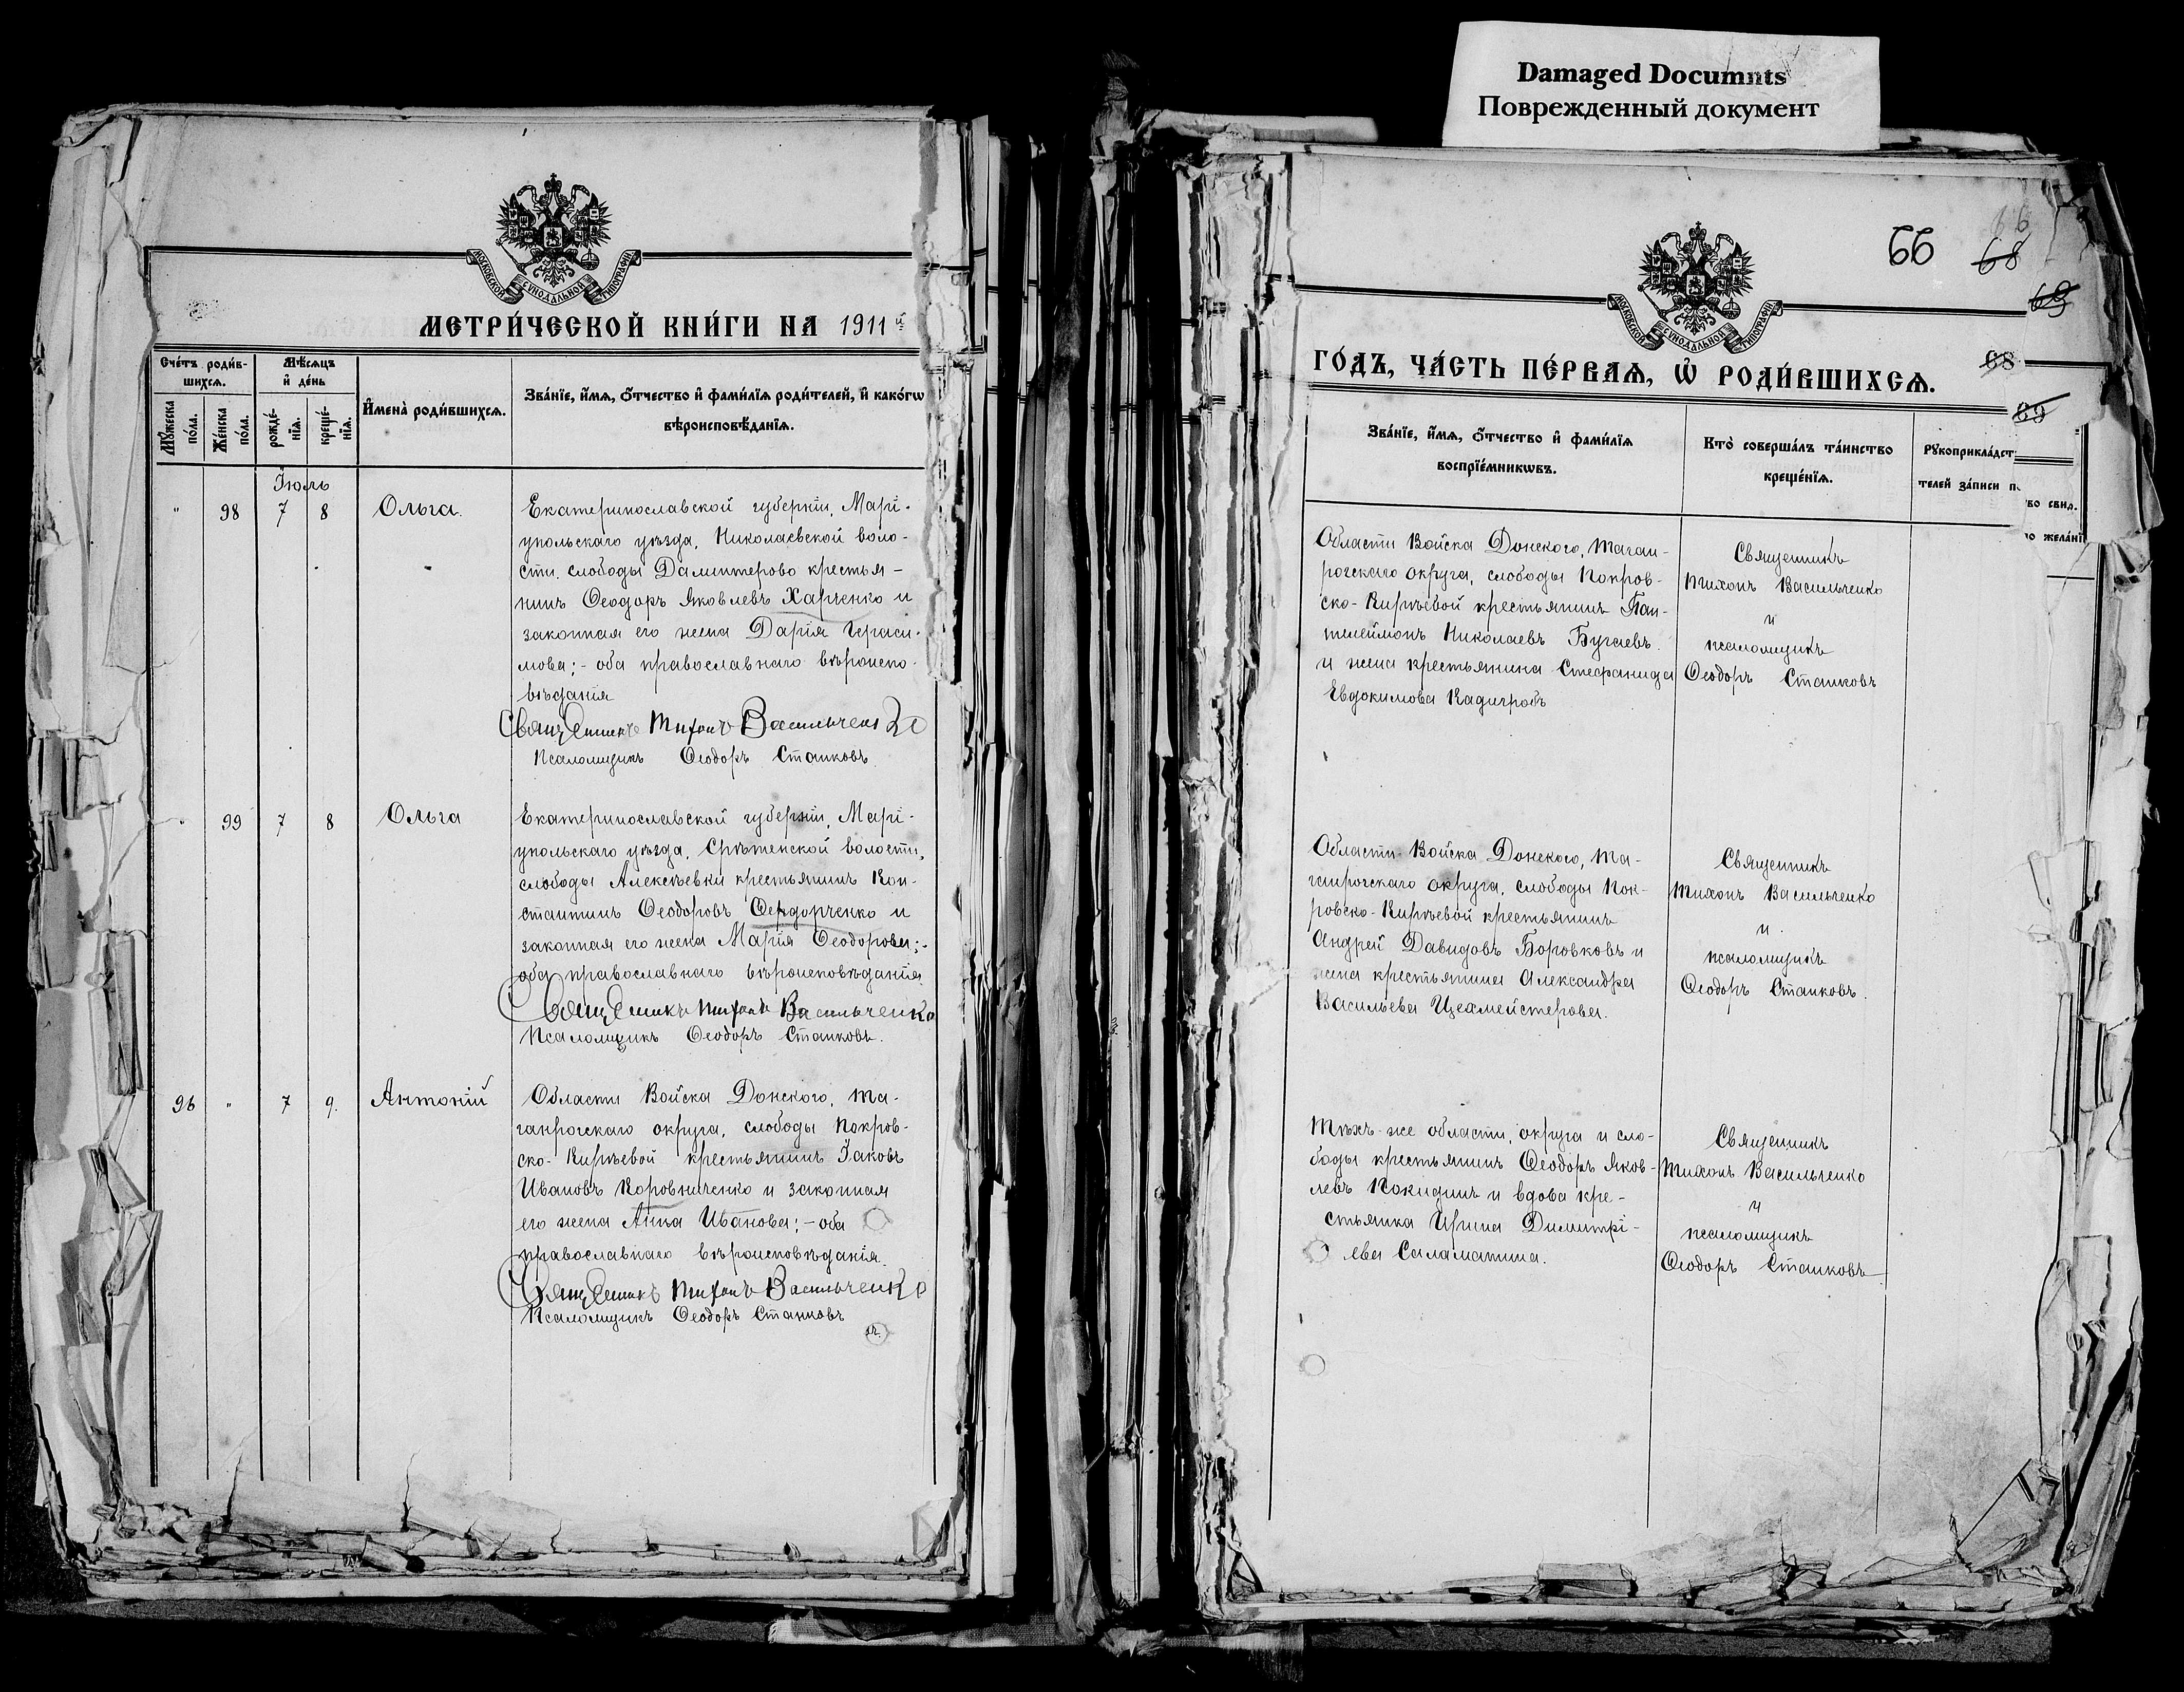 Damaged Documnts
Поврежденный документ
МОСКОВСКОЙ СУНОДАЛЬНОЙ ТИПОГРАФІИ
МЕТРИ́ЧЕСКОЙ КНИ́ГИ НА 1911 й
Сче́тъ роди́в-
шихсѧ.
Мꙋ́жеска
по́ла.
Же́нска
по́ла.
Мѣ́сѧцъ
и҆ де́нь
рожде́-
нїѧ.
креще́-
нїѧ.
И҆мена̀ роди́вшихсѧ.
Зва́нїе, и҆́мѧ, ѻ҆́тчество и҆ фами́лїѧ роди́телей, и҆ како́гѡ
вѣроисповѣ́данїѧ.
Іюль
" 98 7 8 Ольга.
Екатеринославской губерніи, Марі-
упольскаго уѣзда, Николаевской воло-
сти, слободы Далинтерово крестья-
нинъ Ѳеодоръ Яковлевъ Харченко и
законная его жена Дарія Гераси-
мова; - оба православнаго вѣроиспо-
вѣданія
Священникъ Тихонъ Васильченко
Псаломщикъ Ѳеодоръ Станковъ
" 99 7 8 Ольга
Екатеринославской губерніи, Марі-
упольскаго уѣзда, Срѣтенской волости,
слободы Алексѣевки крестьянинъ Кон-
стантинъ Ѳеодоровъ Ѳедорченко и
законная его жена Марія Ѳеодорова; -
оба православнаго вѣроисповѣданія
Священникъ Тихонъ Васильченко
Псаломщикъ Ѳеодоръ Станковъ.
96 " 7 9. Антоній
Области Войска Донского, Та-
ганрогскаго округа, слободы Покров-
ско-Кирѣевой крестьянинъ Іаковъ
Ивановъ Коровниченко и законная
его жена Анна Иванова; - оба
православнаго вѣроисповѣданія.
Священникъ Тихонъ Васильченко
Псаломщикъ Ѳеодоръ Станковъ
66 68
69
68
69
МОСКОВСКОЙ СУНОДАЛЬНОЙ ТИПОГРАФІИ
ГО́ДЪ, ЧА́СТЬ ПЕ́РВАѦ, Ѡ҆ РОДИ́ВШИХСѦ.
Зва́нїе, и҆́мѧ, ѻ҆́тчество и҆ фами́лїѧ
воспрїе́мникѡвъ.
Кто̀ соверша́лъ та́инство
креще́нїѧ.
Рꙋкоприкла́дст
телей за́писи п
во свид.
о жела́нї
Области Войска Донского, Таган-
рогскаго округа, слободы Покров-
ско-Кирѣевой крестьянинъ Пан-
телеймонъ Николаевъ Бугаевъ
и жена крестьянина Стефанида
Евдокимова Кадигробъ
Священникъ
Тихонъ Васильченко
и
псаломщикъ
Ѳеодоръ Станковъ
Области Войска Донского, Та-
ганрогскаго округа, слободы Пок-
ровско-Кирѣевой крестьянинъ
Андрей Давидовъ Боровковъ и
жена крестьянина Александра
Васильева Цехмейстерова.
Священникъ
Тихонъ Васильченко
и
псаломщикъ
Ѳеодоръ Станковъ.
Тѣхъ же области, округа и сло-
боды крестьянинъ Ѳеодоръ Яков-
левъ Кокидинъ и вдова кре-
стьянка Ирина Димитрі-
ева Саламатина.
Священникъ
Тихонъ Васильченко
и
псаломщикъ
Ѳеодоръ Станковъ